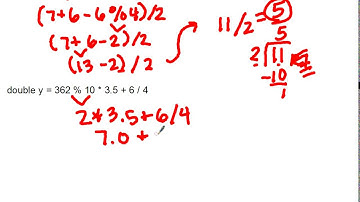 (7+6-6%4)/2
(7+6-2)/2
(13-2)/2
11/2=5
5
2 11
-10
1
double y = 362 % 10 * 3.5 + 6 / 4
2*3.5+6/4
7.0 +